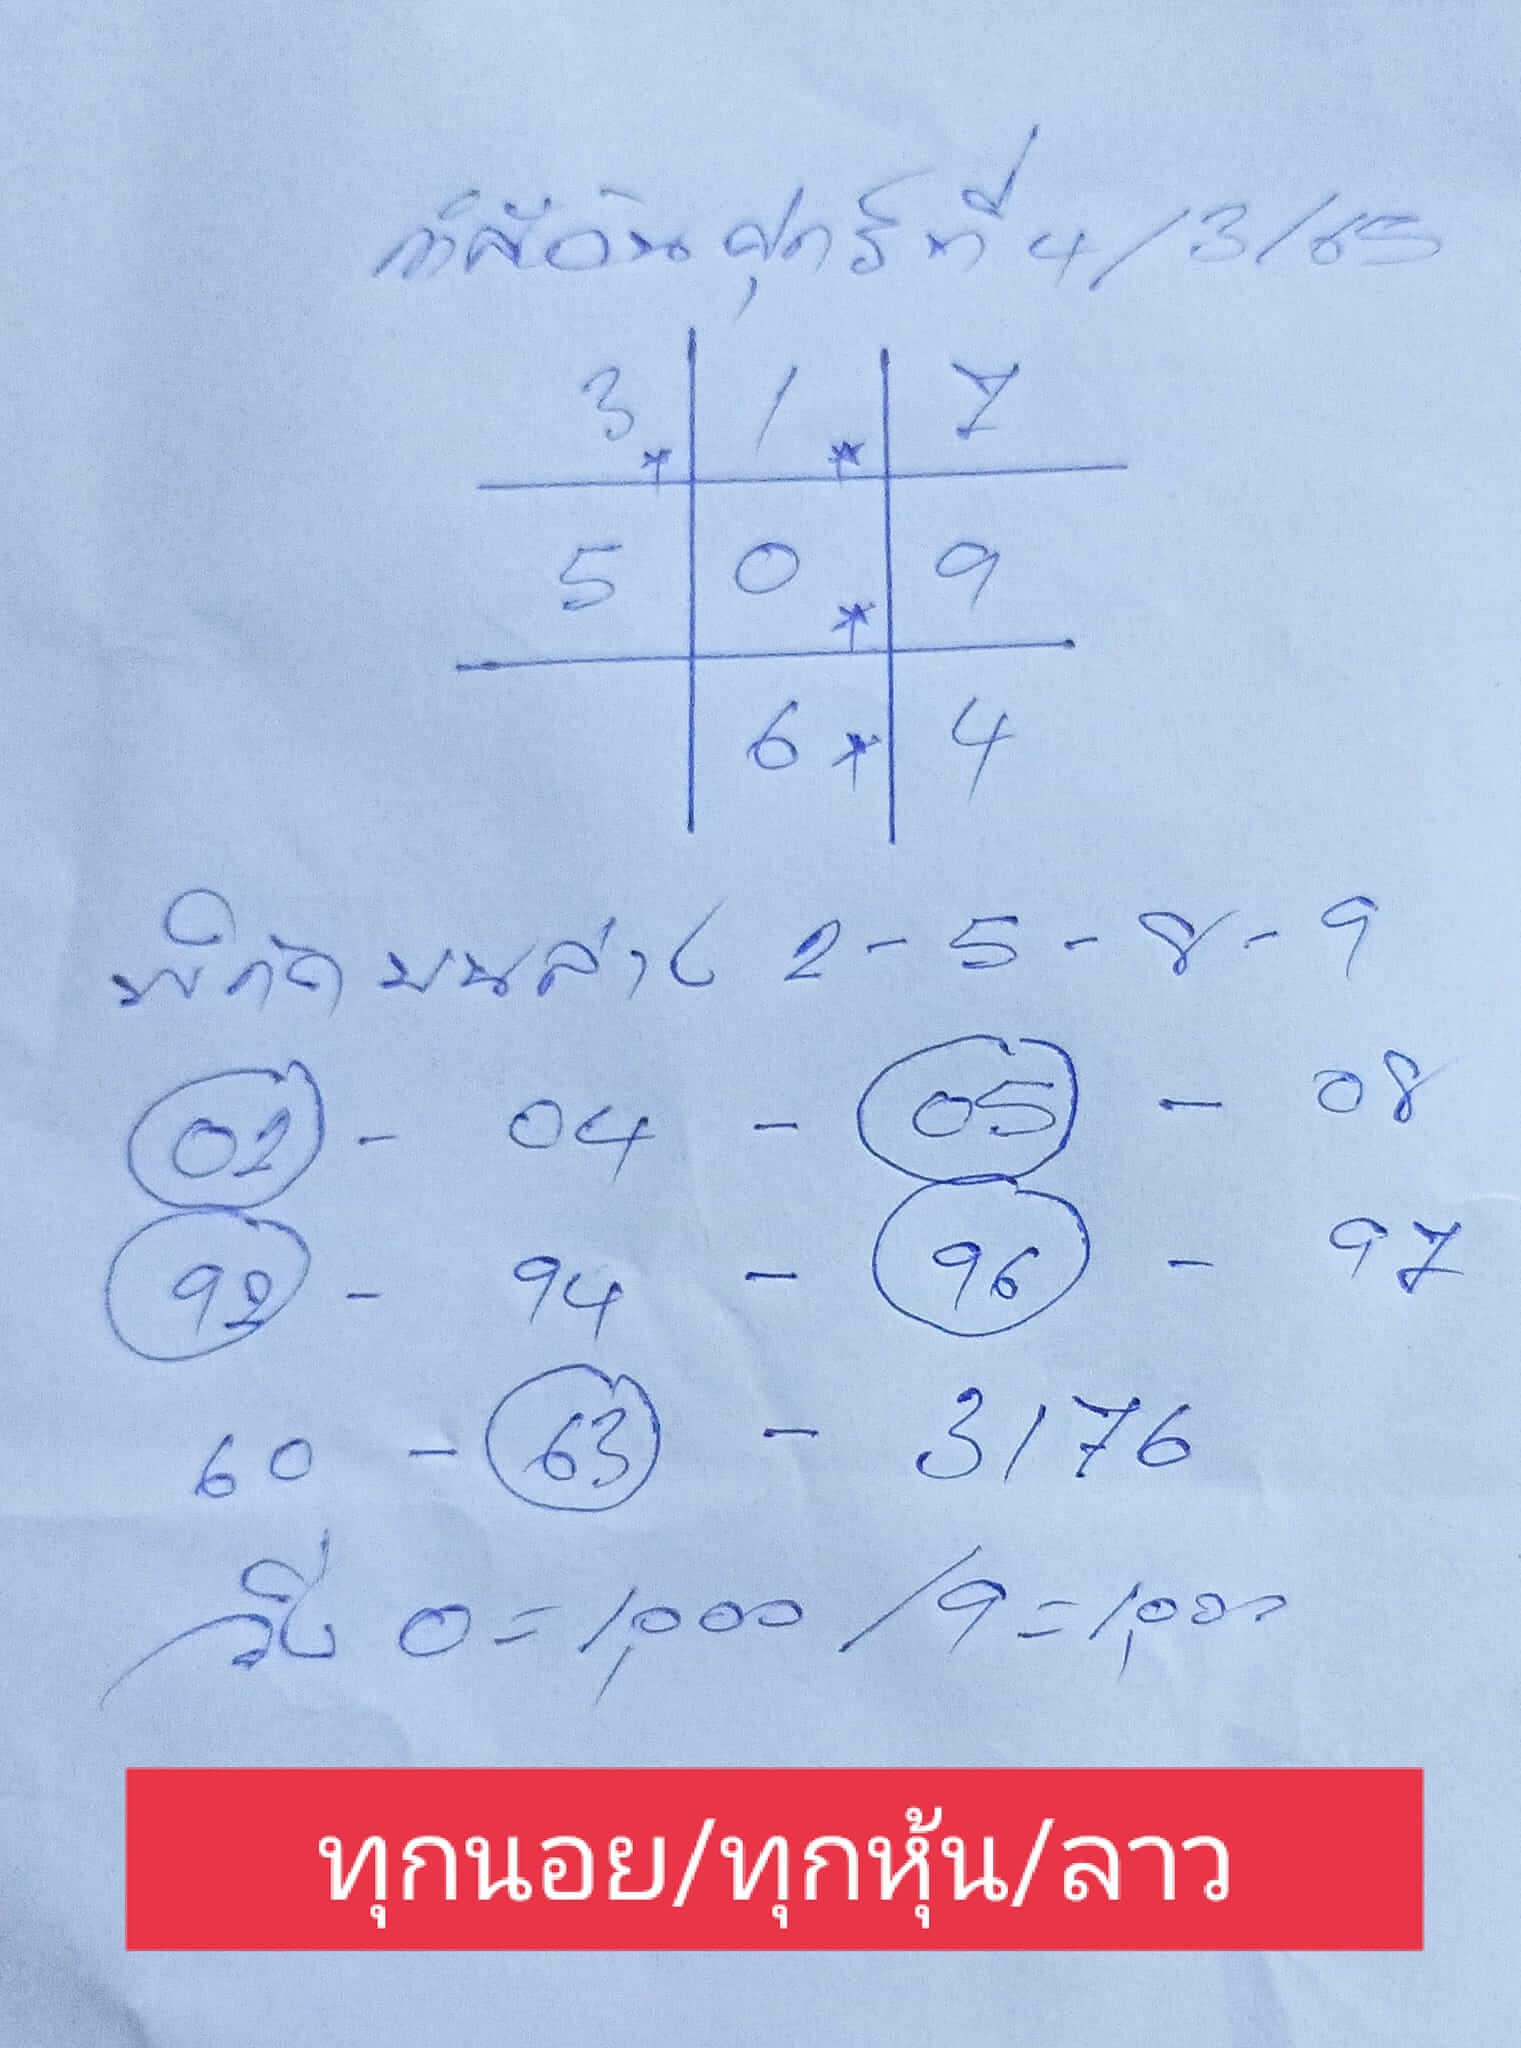 วันศุกร์ที่ 4/3/65
3 1 7
5 0 9
6 4
พิกัด บนล่าง 2-5-8-9
02 - 04 - 05 - 08
92 - 94 - 96 - 97
60 - 63 - 3176
วิ่ง 0=1,000 /9=1,000
ทุกนอย/ทุกหุ้น/ลาว